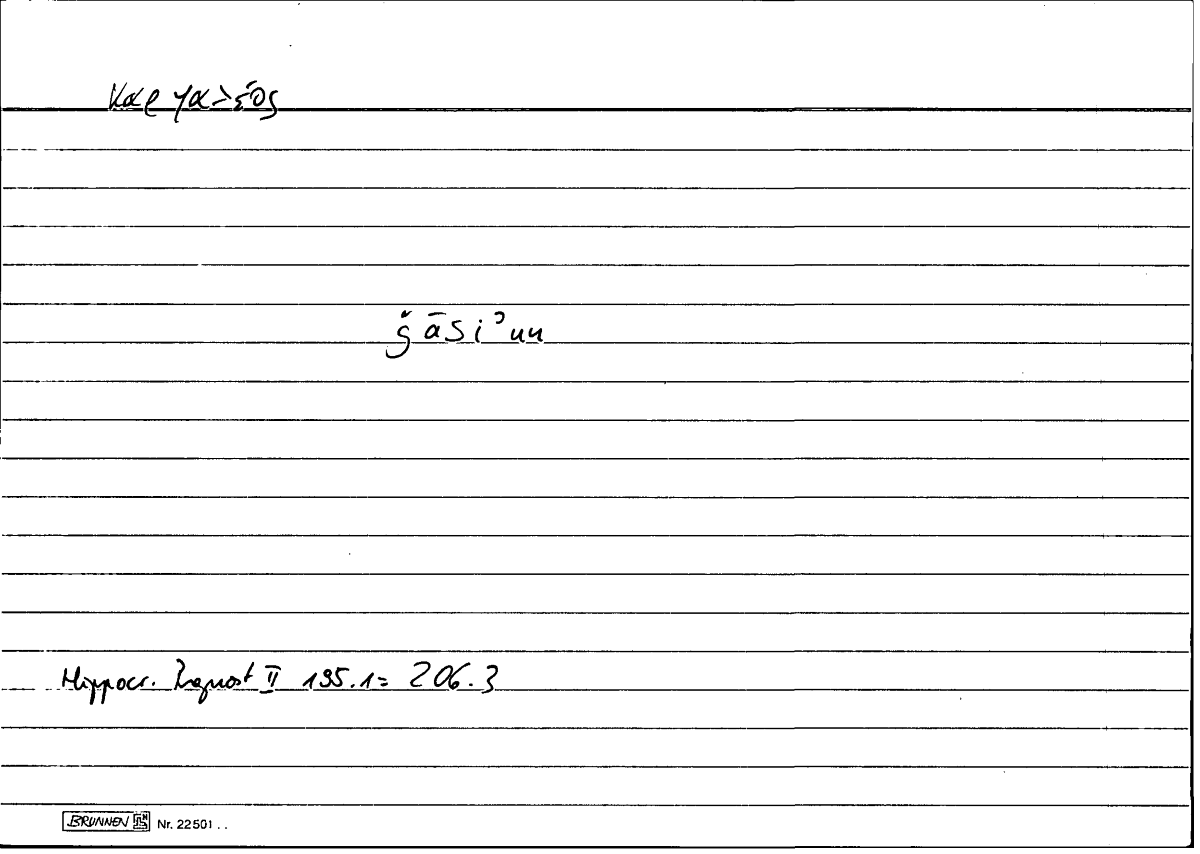 καρφαλέος
ǧāsiʾun
Hippocr. Prognost II 195.1= 206.3
BRUNNEN Nr. 22501 . .